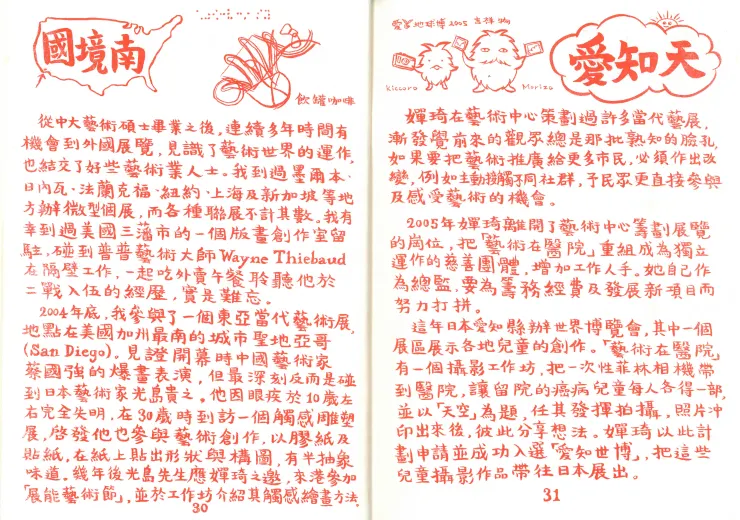 國境南
飲罐咖啡
從中大藝術碩士畢業之後，連續多年時間有
機會到外國展覽，見識了藝術世界的運作，
也結交了好些藝術業人士。我到過墨爾本、
日內瓦、法蘭克福、紐約、上海及新加坡等地
方辦微型個展，而各種聯展不計其數。我有
幸到過美國三藩市的一個版畫創作室留
駐，碰到普普藝術大師Wayne Thiebaud
在隔壁工作，一起吃外賣午餐聆聽他於
二戰入伍的經歷，實是難忘。
2004年底，我參與了一個東亞當代藝術展，
地點在美國加州最南的城市聖地亞哥
(San Diego)。見證開幕時中國藝術家
蔡國強的爆畫表演，但最深刻反而是碰
到日本藝術家光島貴之。他因眼疾於10歲左
右完全失明，在30歲時到訪一個觸感雕塑
展，啓發他也參與藝術創作，以膠紙及
貼紙，在紙上貼出形狀與構圖，有半抽象
味道。幾年後光島先生應嬋琦之邀，來港參加
「展能藝術節」，並於工作坊介紹其觸感繪畫方法。
30
愛·地球博2005 吉祥物
Kiccoro
Morizo
愛知天
嬋琦在藝術中心策劃過許多當代藝展，
漸發覺前來的觀眾總是那批熟知的臉孔，
如果要把藝術推廣給更多市民，必須作出改
變，例如主動接觸不同社群，予民眾更直接參與
及感受藝術的機會。
2005年嬋琦離開了藝術中心籌劃展覽
的崗位，把「藝術在醫院」重組成為獨立
運作的慈善團體，增加工作人手。她自己作
為總監，要為籌務經費及發展新項目而
努力打拼。
這年日本愛知縣辦世界博覽會，其中一個
展區展示各地兒童的創作。「藝術在醫院」
有一個攝影工作坊，把一次性菲林相機帶
到醫院，讓留院的癌病兒童每人各得一部，
並以「天空」為題，任其發揮拍攝，照片沖
印出來後，彼此分享想法。嬋琦以此計
劃申請並成功入選「愛知世博」，把這些
兒童攝影作品帶往日本展出。
31